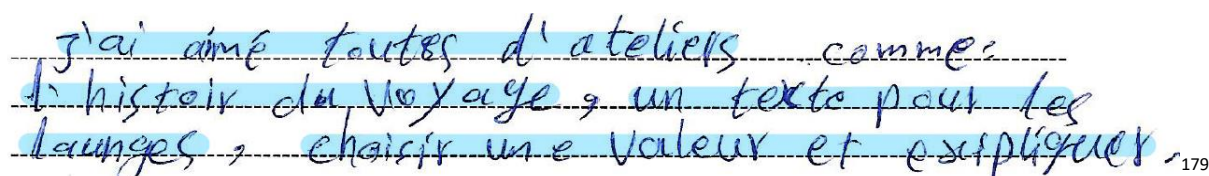 J'ai aimé toutes d'ateliers comme:
l'histoir du voyage, un texte pour les
launges, choisir une valeur et expliquer. 179